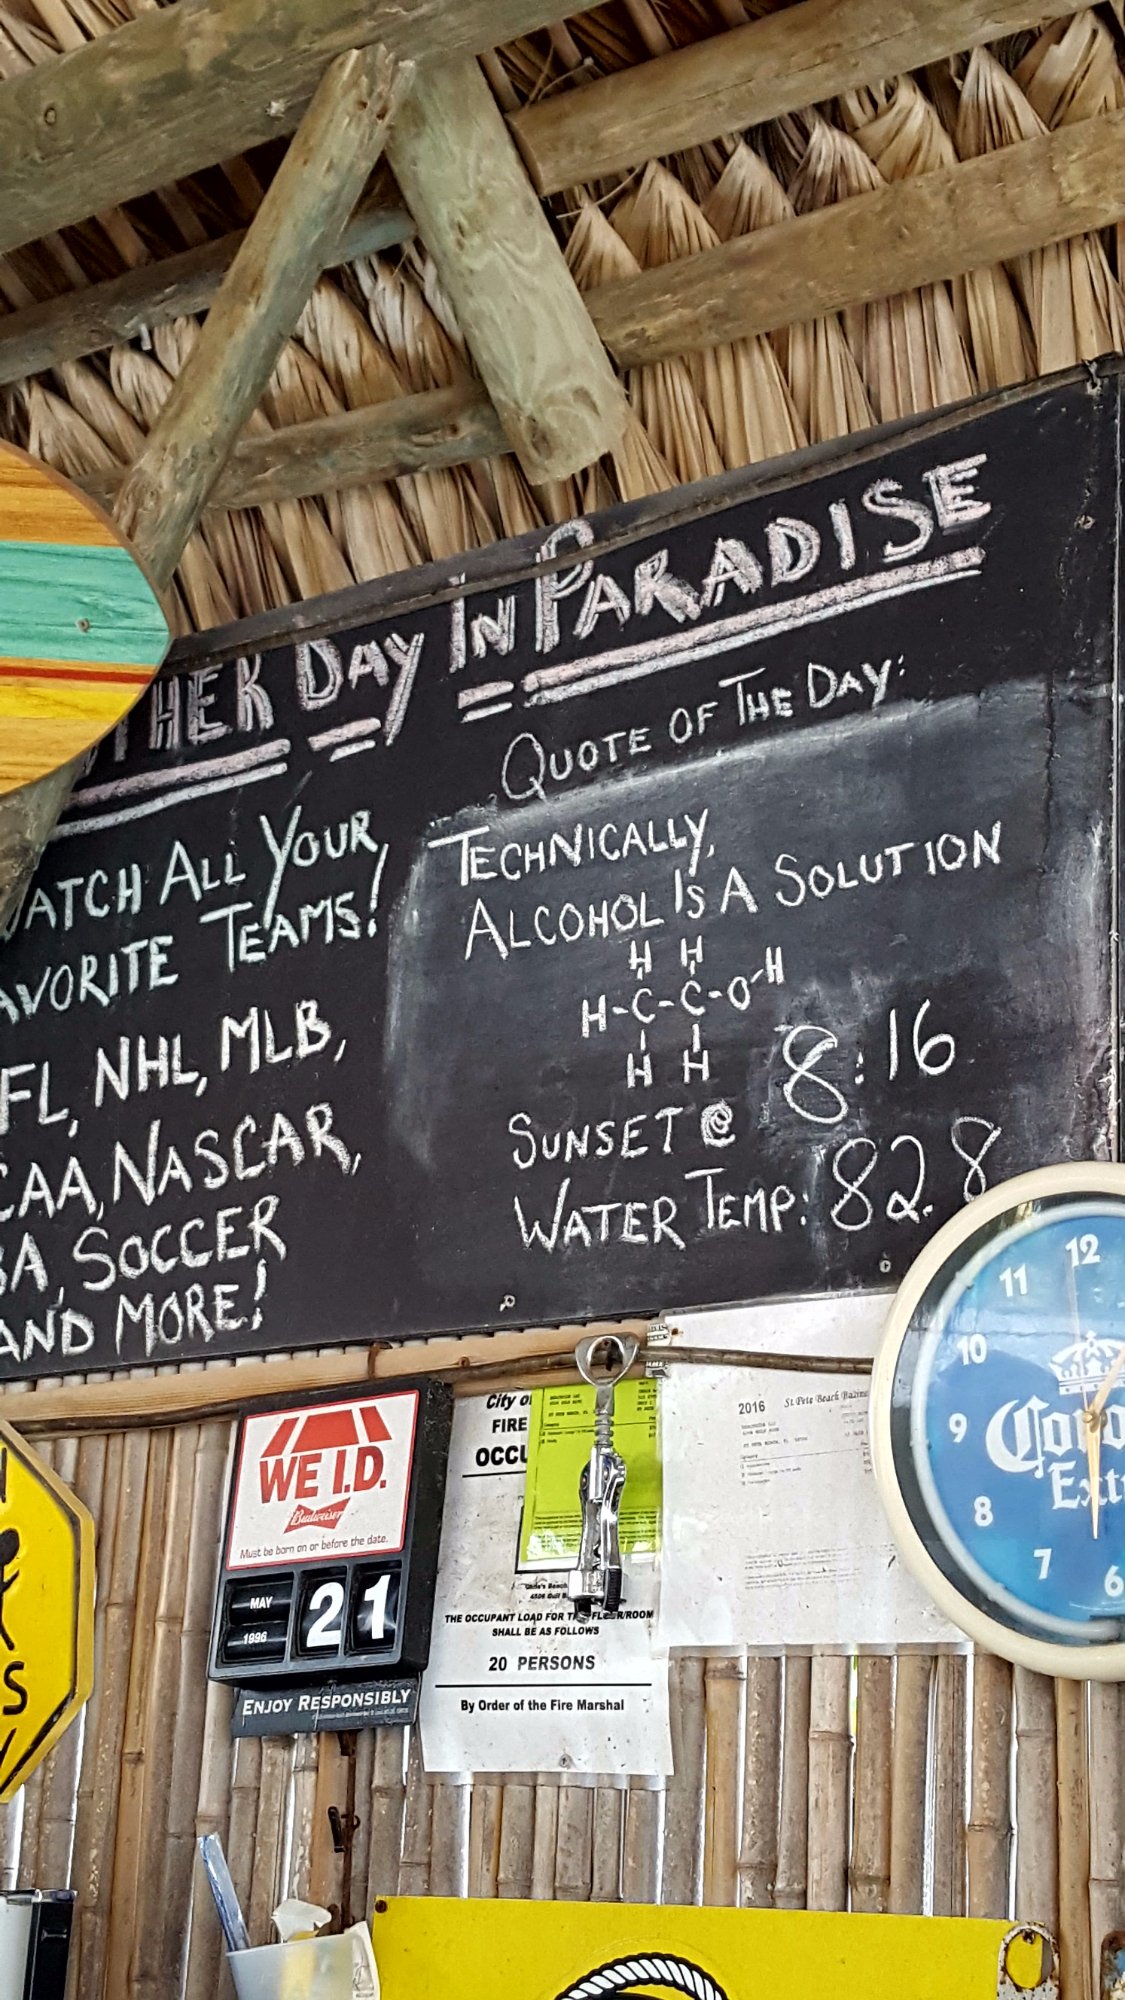 THER DAY IN PARADISE
QUOTE OF THE DAY:
WATCH ALL YOUR
FAVORITE TEAMS!
FL, NHL, MLB,
CAA, NASCAR,
BA, SOCCER
AND MORE!
TECHNICALLY,
ALCOHOL IS A SOLUTION
H H
H-C-C-O-H
H H
SUNSET @ 8:16
WATER TEMP: 82.8
WE I.D.
Budweiser
Must be born on or before the date.
MAY 21
1996
ENJOY RESPONSIBLY
City of
FIRE
OCCU
THE OCCUPANT LOAD FOR THIS FLOOR/ROOM
SHALL BE AS FOLLOWS
20 PERSONS
By Order of the Fire Marshal
2016 St Pete Beach Busine
12
11
10
9
8
7
6
Coro
Extr
S